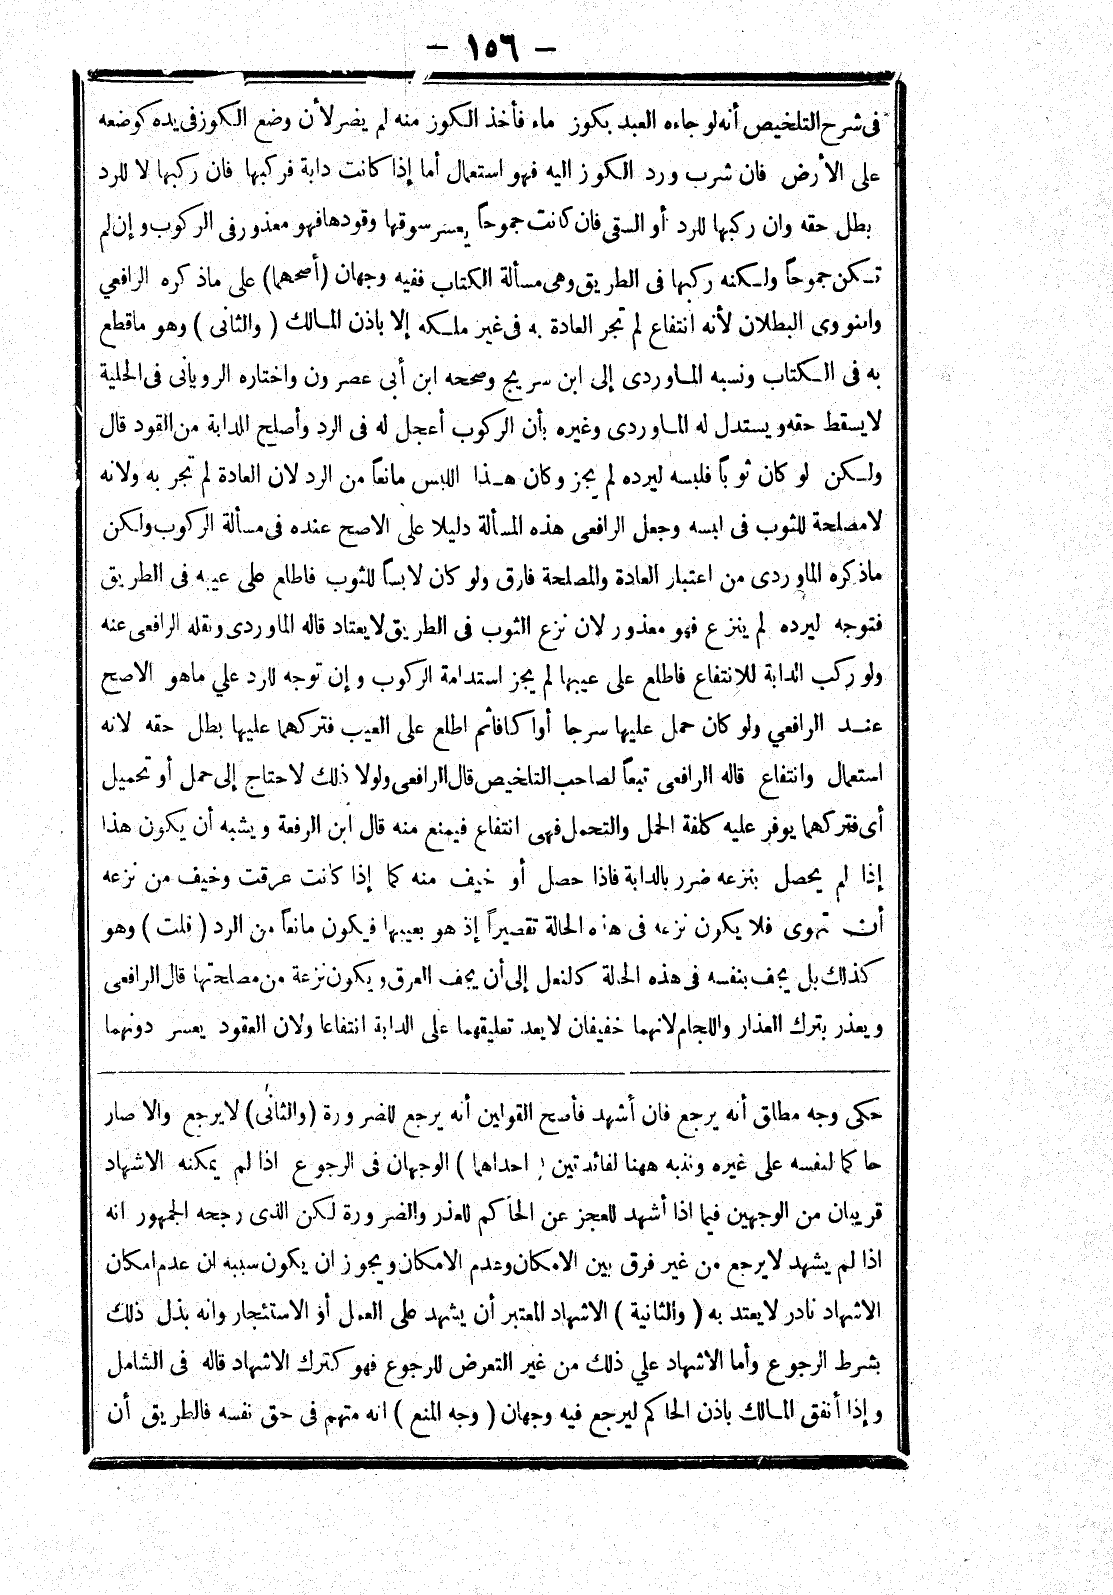 – ١٥٦ –
فى شرح التلخيص أنه لو جاءه العبد بكوز ماء فأخذ الكوز منه لم يضر لأن وضع الكوز فى يده كوضعه
على الأرض فان شرب ورد الكوز اليه فهو استعمال أما إذا كانت دابة فركبها فان ركبها لا للرد
بطل حقه وان ركبها للرد أو السقى فان كانت جموحاً يعسر سوقها وقودها فهو معذور فى الركوب وإن لم
تكن جموحاً ولكنه ركبها فى الطريق وهى مسألة الكتاب ففيه وجهان (أصحهما) على ماذكره الرافعي
والنووى البطلان لأنه انتفاع لم تجر العادة به فى غير ملكه إلا باذن المالك ( والثانى ) وهو ماقطع
به فى الكتاب ونسبه الماوردى إلى ابن سريج وصححه ابن أبي عصرون واختاره الرويانى فى الحلية
لا يسقط حقه ويستدل له الماوردى وغيره بأن الركوب أعجل له فى الرد وأصلح للدابة من القود قال
ولكن لو كان ثوباً فلبسه ليرده لم يجز وكان هذا اللبس مانعاً من الرد لان العادة لم تجر به ولانه
لامصلحة للثوب فى لبسه وجعل الرافعى هذه المسألة دليلا على الاصح عنده فى مسألة الركوب ولكن
ماذكره الماوردى من اعتبار العادة والمصلحة فارق ولو كان لابساً للثوب فاطلع على عيبه فى الطريق
فتوجه ليرده لم ينزع فهو معذور لان نزع الثوب فى الطريق لايعتاد قاله الماوردى ونقله الرافعى عنه
ولو ركب الدابة للانتفاع فاطلع على عيبها لم يجز استدامة الركوب وإن توجه للرد علي ماهو الاصح
عند الرافعي ولو كان حمل عليها سرجا أو اكافا ثم اطلع على العيب فتركهما عليها بطل حقه لانه
استعمال وانتفاع قاله الرافعى تبعاً لصاحب التلخيص قال الرافعى ولولا ذلك لاحتاج إلى حمل أو تحميل
أى فتركهما يوفر عليه كلفة الحمل والتحمل فهى انتفاع فيمنع منه قال ابن الرفعة ويشبه أن يكون هذا
إذا لم يحصل بنزعه ضرر بالدابة فاذا حصل أو خيف منه كما إذا كانت عرقت وخيف من نزعه
أن تهوى فلا يكون نزعه فى هذه الحالة تقصيراً إذ هو بعيبها فيكون مانعاً من الرد ( قلت ) وهو
كذلك بل يجف بنفسه فى هذه الحالة كالنعل إلى أن يجف العرق ويكون نزعة من مصلحتها قال الرافعى
ويعذر بترك العذار واللجام لانهما خفيفان لايعد تعليقهما على الدابة انتفاعا ولان العقود يعسر دونهما
حكى وجه مطلق أنه يرجع فان أشهد فأصح القولين أنه يرجع للضرورة (والثانى) لا يرجع والا صار
حاكما لنفسه على غيره ونبه ههنا لفائدتين ( احداهما ) الوجهان فى الرجوع اذا لم يمكنه الاشهاد
قريبان من الوجهين فيما اذا أشهد للعجز عن الحاكم للعذر والضرورة لكن الذى رجحه الجمهور انه
اذا لم يشهد لا يرجع من غير فرق بين الامكان وعدم الامكان ويجوز ان يكون سببه ان عدم امكان
الاشهاد نادر لا يعتد به ( والثانية ) الاشهاد المعتبر أن يشهد على العمل أو الاستئجار وانه بذل ذلك
بشرط الرجوع وأما الاشهاد علي ذلك من غير التعرض للرجوع فهو كترك الاشهاد قاله فى الشامل
وإذا أنفق المالك باذن الحاكم ليرجع فيه وجهان ( وجه المنع ) انه متهم فى حق نفسه فالطريق أن